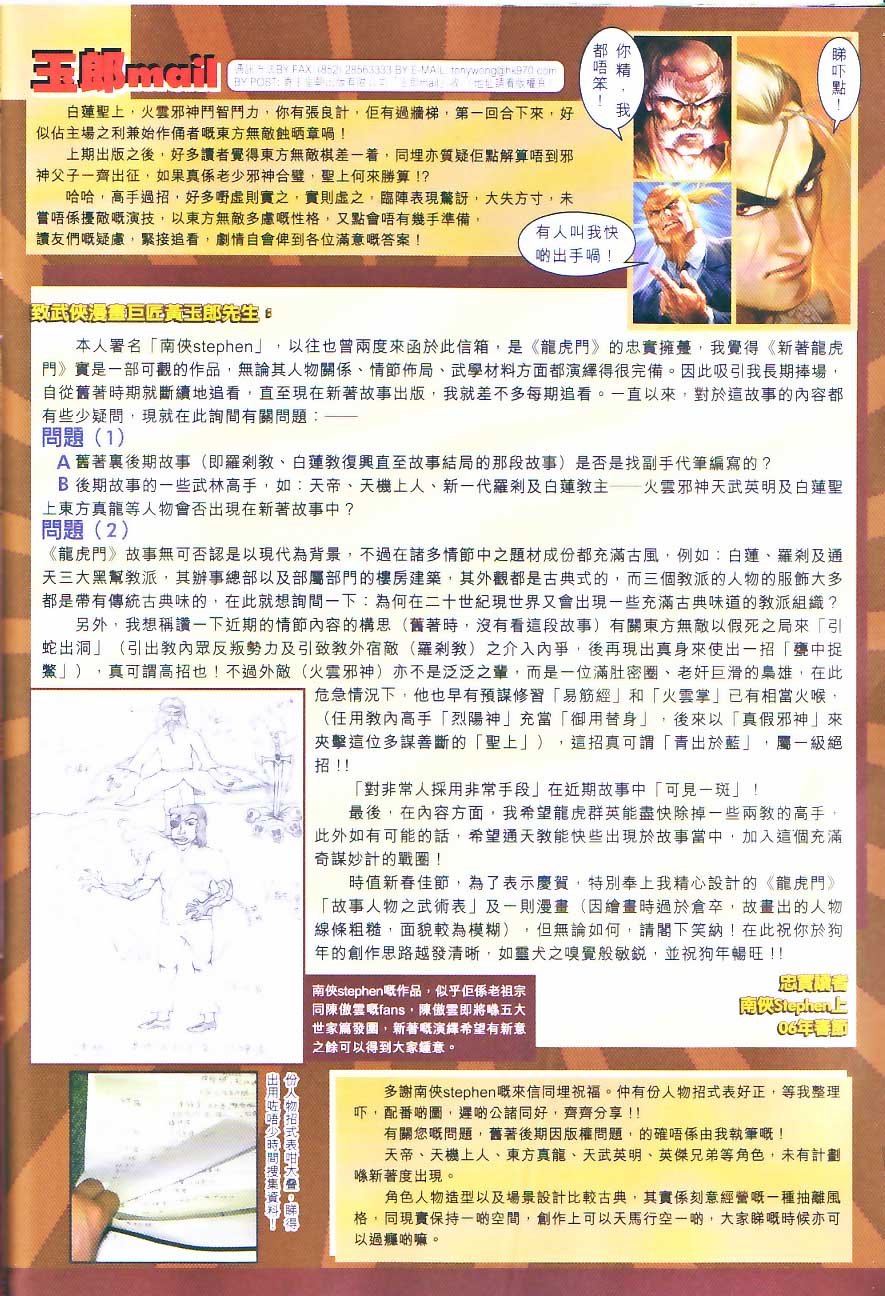 玉郎mail
通訊方式BY FAX: (852) 28563333 BY E-MAIL: tonywong@hk970.com
白蓮聖上，火雲邪神鬥智鬥力，你有張良計，佢有過牆梯，第一回合下來，好
似佔主場之利兼始作俑者嘅東方無敵蝕晒章喎！
上期出版之後，好多讀者覺得東方無敵棋差一着，同埋亦質疑佢點解算唔到邪
神父子一齊出征，如果真係老少邪神合璧，聖上何來勝算！？
哈哈，高手過招，好多嘢虛則實之，實則虛之，臨陣表現驚訝，大失方寸，未
嘗唔係擾敵嘅演技，以東方無敵多慮嘅性格，又點會唔有幾手準備，
讀友們嘅疑慮，緊接追看，劇情自會俾到各位滿意嘅答案！
你精，我
都唔笨！
睇吓點！
有人叫我快
啲出手喎！
致武俠漫畫巨匠黃玉郎先生：
本人署名「南俠stephen」，以往也曾兩度來函於此信箱，是《龍虎門》的忠實擁躉，我覺得《新著龍虎
門》實是一部可觀的作品，無論其人物關係、情節佈局、武學材料方面都演繹得很完備。因此吸引我長期捧場，
自從舊著時期就斷續地追看，直至現在新著故事出版，我就差不多每期追看。一直以來，對於這故事的內容都
有些少疑問，現就在此詢問有關問題：——
問題（1）
A 舊著裏後期故事（即羅刹教、白蓮教復興直至故事結局的那段故事）是否是找副手代筆編寫的？
B 後期故事的一些武林高手，如：天帝、天機上人、新一代羅刹及白蓮教主——火雲邪神天武英明及白蓮聖
上東方真龍等人物會否出現在新著故事中？
問題（2）
《龍虎門》故事無可否認是以現代為背景，不過在諸多情節中之題材成份都充滿古風，例如：白蓮、羅刹及通
天三大黑幫教派，其辦事總部以及部屬部門的樓房建築，其外觀都是古典式的，而三個教派的人物的服飾大多
都是帶有傳統古典味的，在此就想詢問一下：為何在二十世紀現世界又會出現一些充滿古典味道的教派組織？
另外，我想稱讚一下近期的情節內容的構思（舊著時，沒有看這段故事）有關東方無敵以假死之局來「引
蛇出洞」（引出教內眾反叛勢力及引致教外宿敵（羅刹教）之介入內爭，後再現出真身來使出一招「甕中捉
鱉」），真可謂高招也！不過外敵（火雲邪神）亦不是泛泛之輩，而是一位滿肚密圈、老奸巨滑的梟雄，在此
危急情況下，他也早有預謀修習「易筋經」和「火雲掌」已有相當火喉，
（任用教內高手「烈陽神」充當「御用替身」，後來以「真假邪神」來
夾擊這位多謀善斷的「聖上」），這招真可謂「青出於藍」，屬一級絕
招！！
「對非常人採用非常手段」在近期故事中「可見一斑」！
最後，在內容方面，我希望龍虎群英能盡快除掉一些兩教的高手，
此外如有可能的話，希望通天教能快些出現於故事當中，加入這個充滿
奇謀妙計的戰圈！
時值新春佳節，為了表示慶賀，特別奉上我精心設計的《龍虎門》
「故事人物之武術表」及一則漫畫（因繪畫時過於倉卒，故畫出的人物
線條粗糙，面貌較為模糊），但無論如何，請閣下笑納！在此祝你於狗
年的創作思路越發清晰，如靈犬之嗅覺般敏鋭，並祝狗年暢旺！！
忠實讀者
南俠Stephen上
06年春節
南俠stephen嘅作品，似乎佢係老祖宗
同陳傲雲嘅fans，陳傲雲即將喺五大
世家篇發圍，新著嘅演繹希望有新意
之餘可以得到大家鍾意。
份人物招式表咁大叠，睇得
出用咗唔少時間搜集資料！
多謝南俠stephen嘅來信同埋祝福。仲有份人物招式表好正，等我整理
吓，配番啲圖，遲啲公諸同好，齊齊分享！！
有關您嘅問題，舊著後期因版權問題，的確唔係由我執筆嘅！
天帝、天機上人、東方真龍、天武英明、英傑兄弟等角色，未有計劃
喺新著度出現。
角色人物造型以及場景設計比較古典，其實係刻意經營嘅一種抽離風
格，同現實保持一啲空間，創作上可以天馬行空一啲，大家睇嘅時候亦可
以過癮啲嘛。